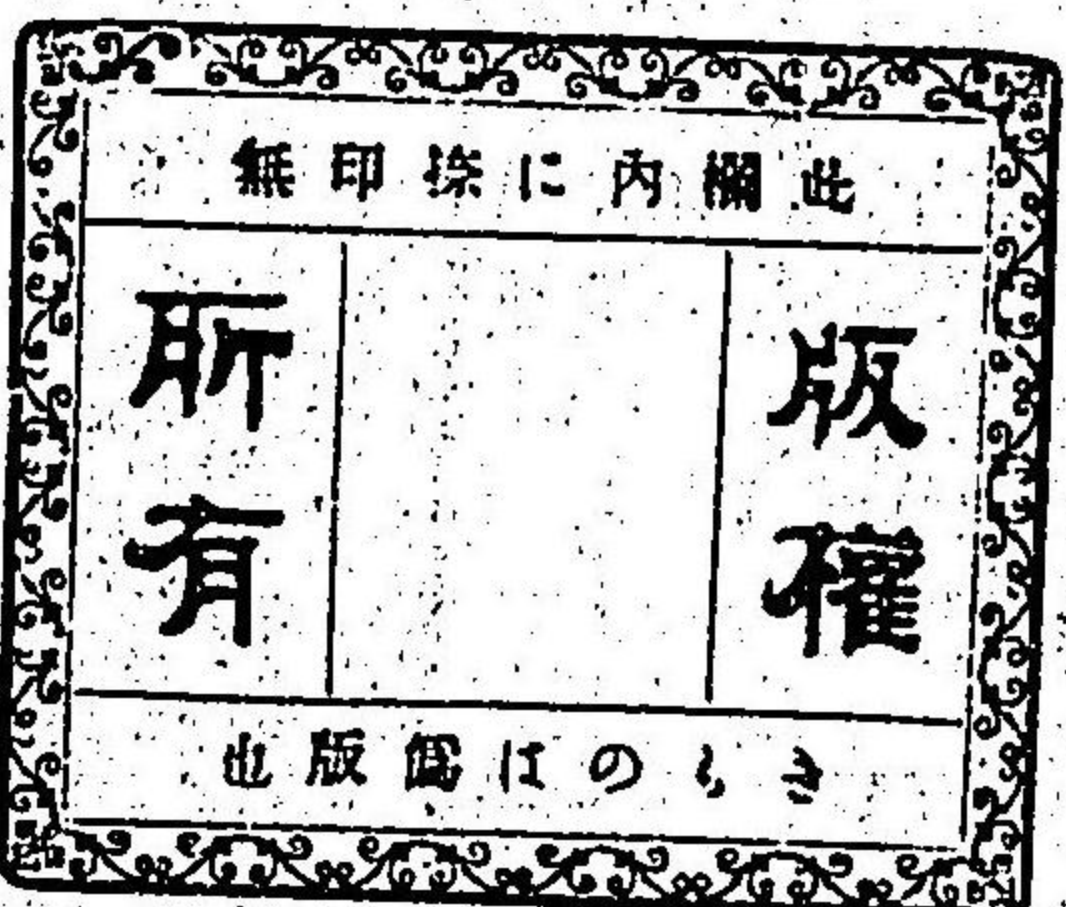 此欄内に捺印無
版權
所有
きものは僞版也